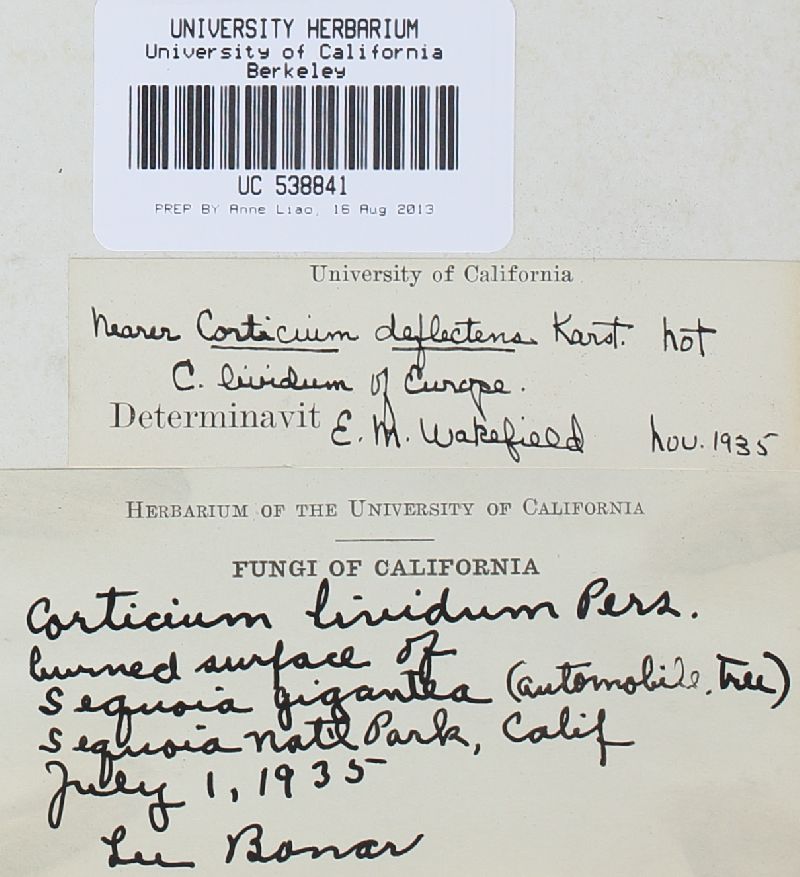 UNIVERSITY HERBARIUM
University of California
Berkeley
UC 538841
PREP BY Anne Liao, 16 Aug 2013
University of California
Nearer Corticium deflectens Karst. not
C. lividum of Europe.
Determinavit E. M. Wakefield Nov. 1935
HERBARIUM OF THE UNIVERSITY OF CALIFORNIA
FUNGI OF CALIFORNIA
Corticium lividum Pers.
burned surface of
Sequoia gigantea (automobile tree)
Sequoia Natl Park, Calif
July 1, 1935
Lee Bonar